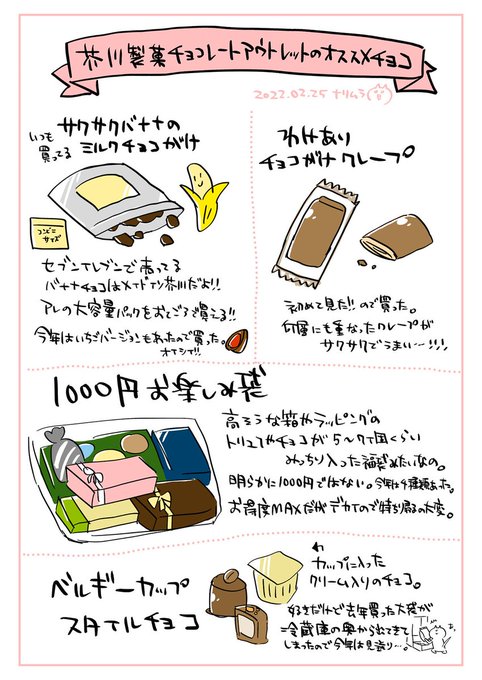 芥川製菓チョコレートアウトレットのオススメチョコ
2022.02.25 ナリムラ
いつも
買ってる
サクサクバナナの
ミルクチョコがけ
コンビニ
サイズ
セブンイレブンで売ってる
バナナチョコはメイドイン芥川だよ!!
アレの大容量パックをおとくに買える!!
今年はいちごバージョンもあったので買った。
オイシイ!!
わけあり
チョコがけクレープ
初めて見た!!ので買った。
何層にも重なったクレープが
サクサクでうまい〜!!!
1000円お楽しみ袋
高そうな箱やラッピングの
トリュフやチョコが5〜7個くらい
みっちり入った福袋みたいなの。
明らかに1000円ではない。今年は4種類あった。
お得度MAXだがデカイので持ち帰るの大変。
ベルギーカップ
スタイルチョコ
カップに入った
クリーム入りのチョコ。
好きだけど去年買った大袋が
冷蔵庫の奥から出てきて
しまったので今年は見送り…。